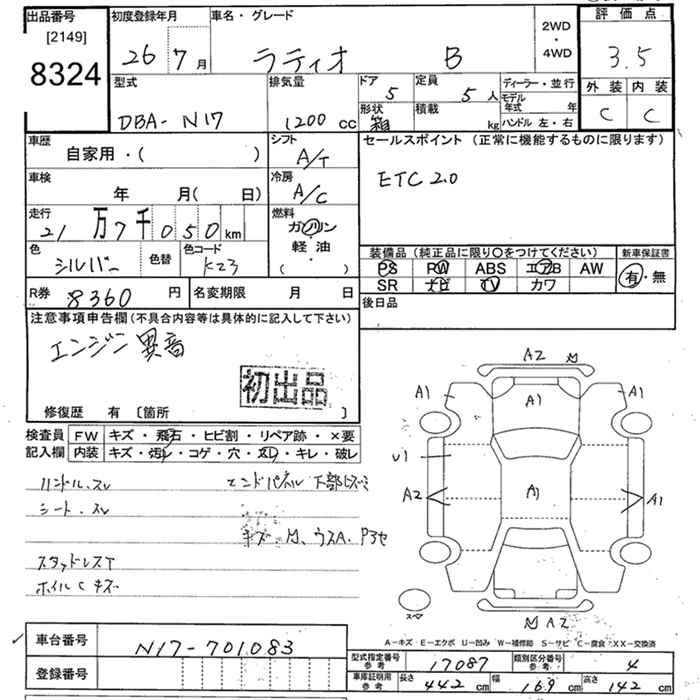 出品番号 初度登録年月 車名・グレード 2WD・4WD 評価点
[2149]
8324 26 7月 ラティオ B 3.5
型式 排気量 ドア 定員 ディーラー・並行 外装 内装
DBA-N17 1200 cc 5 5人 モデル年式 年 C C
形状 箱 積載 kg ハンドル 左・右
車歴 シフト セールスポイント (正常に機能するものに限ります)
自家用・( ) A/T
ETC 2.0
車検 冷房
年 月( 日) A/C
走行 燃料
21万7千050km ガソリン
軽油
( )
装備品 (純正品に限り○をつけてください) 新車保証書
色 シルバー 色替 色コード K23
PS PW ABS エアB AW 有・無
SR ナビ TV カワ
R券 8360円 名変期限 月 日 後日品
注意事項申告欄 (不具合内容等は具体的に記入して下さい)
エンジン異音
初出品
修復歴 有 [箇所 ]
検査員 FW キズ・飛石・ヒビ割・リペア跡・×要
記入欄 内装 キズ・汚レ・コゲ・穴・スレ・キレ・破レ
ハンドル.スレ エンドパネル 下部ヒズミ
シート.スレ
キズ.凹、ウスA. Pヨセ
スタッドレスT
ホイルCキズ
A2
A1 A1 A1
U1
A2 A1 A1
スペア
A2
A-キズ E-エクボ U-凹み W-補修跡 S-サビ C-腐食 XX-交換済
車台番号 N17-701083
登録番号
型式指定番号 参考 17087 類別区分番号 参考 4
車庫証明用 参考 長さ 442cm 幅 169cm 高さ 142cm